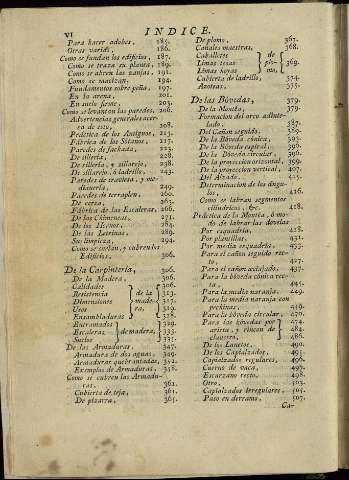 VI INDICE.
Para hacer adobes, 185.
Otras varias, 186.
Como se fundan los edificios, 187.
Como se traza su planta, 189.
Como se abren las zanjas, 191.
Como se macizan, 194.
Fundamentos sobre peña, 197.
En la arena, 201.
En suelo firme, 203.
Como se levantan las paredes, 206.
Advertencias generales acer-
ca de esto, 208.
Práctica de los Antiguos, 213.
Fábrica de los Sótanos, 217.
Paredes de fachada, 223.
De sillería, 228.
De sillería, y sillarejo, 238.
De sillarejo, ó ladrillo, 243.
Paredes de
249.
Paredes de terraplen, 260.
De cerca, 263.
Fábrica de las Escaleras, 266.
De las Chimeneas, 271.
De los Hornos, 284.
De las Letrinas, 289.
Su limpieza, 294.
Como se cortan, y cubren los
Edificios, 306.
De la Carpintería, 306.
De la Madera, 306.
Calidades 306.
Resistencia de la 313.
Dimensiones made- 319.
Usos ra, 319.
Ensambladuras 328.
Entramados 329.
Escaleras de madera, 333.
Suelos 331.
De las Armaduras, 347.
Armadura de dos aguas, 349.
Armaduras quebrantadas, 352.
Exemplos de Armaduras, 358.
Como se cubren las Armadu-
ras, 361.
Cubierta de teja, 361.
De pizarra, 365.
De plomo, 367.
Canales maestras, 368.
Caballetes de
Limas tesas pi- 369.
Limas hoyas no,
Cubierta de ladrillo, 374.
Azoteas, 375.
De las Bóvedas, 379.
De la Montea, 379.
Formacion del arco adinte-
lado, 387.
Del Cañon seguido, 389.
De la Bóveda cónica, 393.
De la Bóveda espiral, 396.
De la Bóveda circular, 396.
De la proyeccion orizontal, 396.
De la proyeccion vertical, 407.
Del Alzado, 415.
Determinacion de los ángu-
los, 416.
Como se labran segmentos
cilíndricos, &c. 428.
Práctica de la Montea, ó mo-
do de labrar las dovelas
Por esquadría, 428.
Por plantillas, 431.
Por media esquadría, 433.
Para el cañon seguido rec-
to, 427.
Para el cañon aviajado, 437.
Para la bóveda cónica rec-
ta, 441.
Para la media naranja, 449.
Para la media naranja con
pechinas, 449.
Para la bóveda circular, 470.
Para las bóvedas por 474.
arista, y rincon de 484.
claustro, 486.
De los Lunetos, 490.
De los Capialzados, 495.
Capialzados regulares, 496.
Cuernos de vaca, 497.
Escarzano recto, 498.
Otro, 503.
Capialzados irregulares, 505.
Paso en derramo, 507.
Ca-